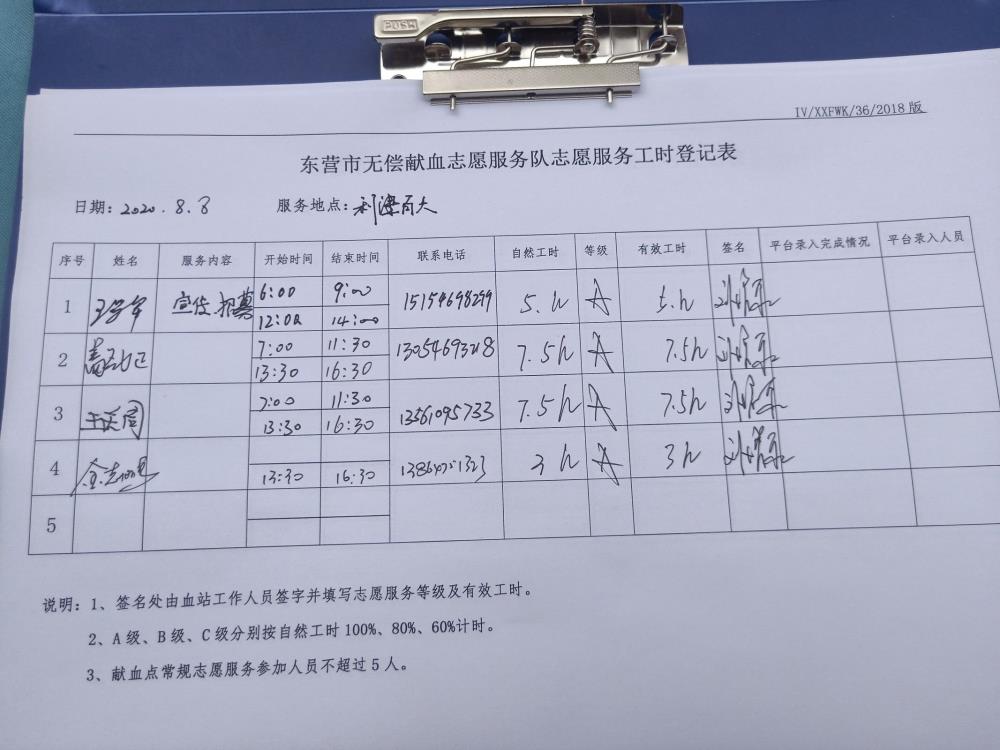 PUSH
IV/XXFWK/36/2018版
东营市无偿献血志愿服务队志愿服务工时登记表
日期：2020.8.8 服务地点：利津百大
序号 姓名 服务内容 开始时间 结束时间 联系电话 自然工时 等级 有效工时 签名 平台录入完成情况 平台录入人员
1 宣传.招募 6:00 9:00 15154698299 5.h A 5.h
12:00 14:00
2 7:00 11:30 13054693218 7.5h A 7.5h
13:30 16:30
3 7:00 11:30 13561095733 7.5h A 7.5h
13:30 16:30
4 13:30 16:30 3h A 3h
5
说明：1、签名处由血站工作人员签字并填写志愿服务等级及有效工时。
2、A级、B级、C级分别按自然工时100%、80%、60%计时。
3、献血点常规志愿服务参加人员不超过5人。